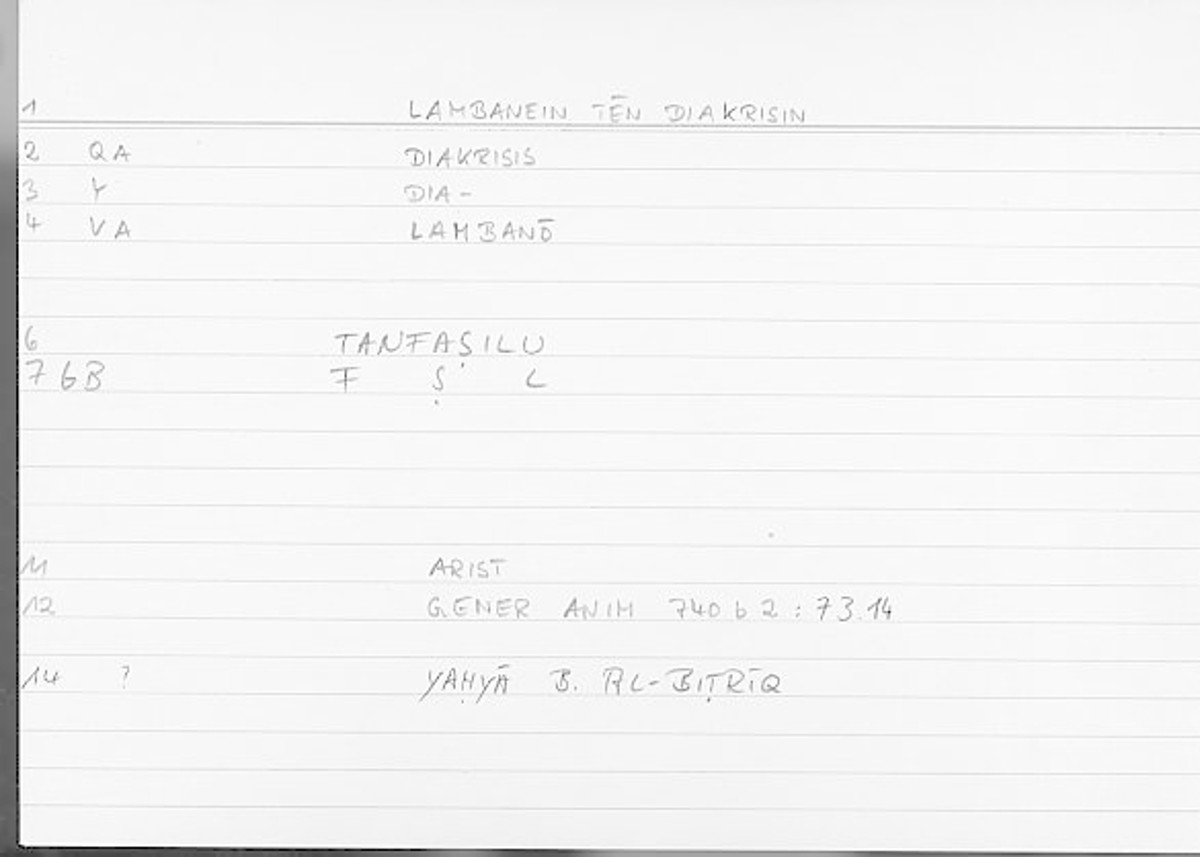 1 LAMBANEIN TĒN DIAKRISIN
2 QA DIAKRISIS
3 Y DIA-
4 VA LAMBANŌ
6 TANFAṢILU
7 6B F Ṣ L
11 ARIST
12 GENER ANIM 740 b 2 : 73.14
14 ? YAḤYĀ B. AL-BIṬRĪQ